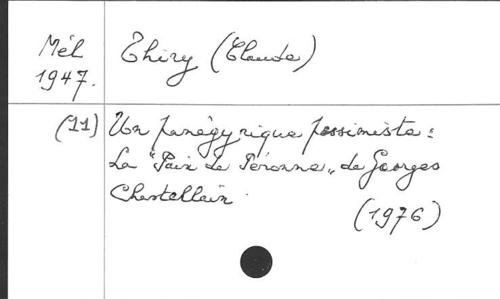 Mél
1947.
Thiry (Claude)
(11) Un panégyrique pessimiste :
La "Paix de Péronne" de Georges
Chastellain.
(1976)